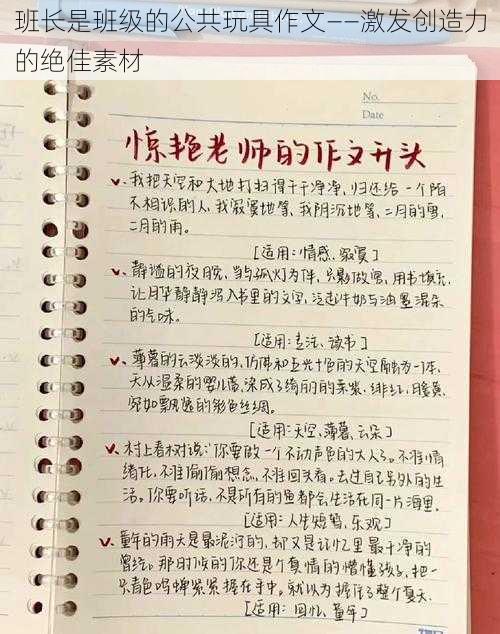 班长是班级的公共玩具作文——激发创造力
的绝佳素材
No.
Date
惊艳老师的作文开头
我把天空和大地打扫得干干净净,归还给一个陌
不相识的人,我寂寞地等,我阴沉地等,二月的雪,
二月的雨。
[适用:情感、寂寞]
静谧的夜晚,当与孤灯为伴,只影做窗,用书填充,
让月华静静泻入书里的文字,泛起牛奶与油墨混杂
的气味。
[适用:生活、读书]
薄暮的云淡淡的,仿佛和五光十色的天空融为一体,
天从湿柔的婴儿蓝,涂成了绮丽的亲紫、绯红,
宛如飘逸的彩色丝绸。
[适用:天空、薄暮、云朵]
村上春树说:你要做一个不动声色的大人了。不准情
绪化,不准偷偷想念,不准回头看。去过自己另外的生
活。你要听话,不是所有的鱼都会生活在同一片海里。
[适用:人生短暂、乐观]
童年的雨天是最泥泞的,却又是记忆里最干净的
曾经。那时候的你还是个夏情的懵懂孩子,把一
只青色鸣蝉紧紧握在手中。就以为握住了整个夏天。
[适用:回忆、童年]